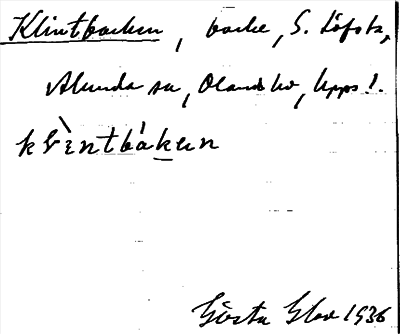 Klintbacken, backe, S. Löfsta,
Alunda sn, Olands hd, Upps l.
klìntbákɐn
Gösta Glad 1936